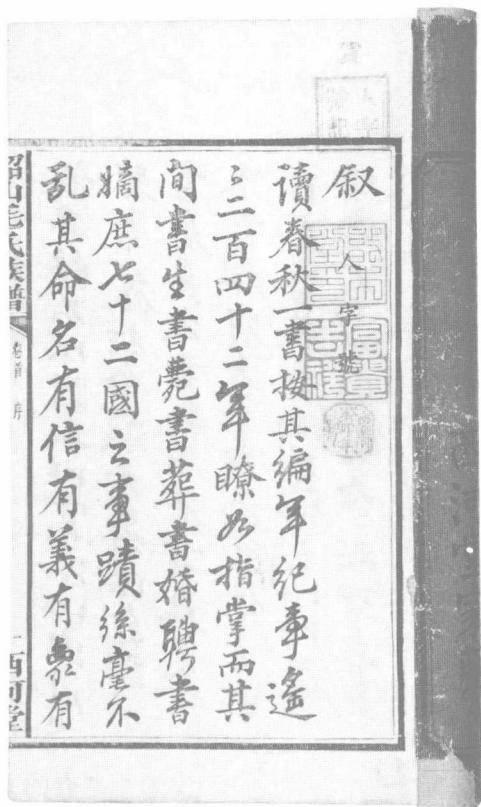 叙
人字號
讀春秋一書按其編年紀事遙
遙二百四十二年瞭如指掌而其
間書生書薨書葬書婚聘書
嫡庶七十二國之事蹟絲毫不
亂其命名有信有義有象有
韶山毛氏族譜
卷首 序
西河堂